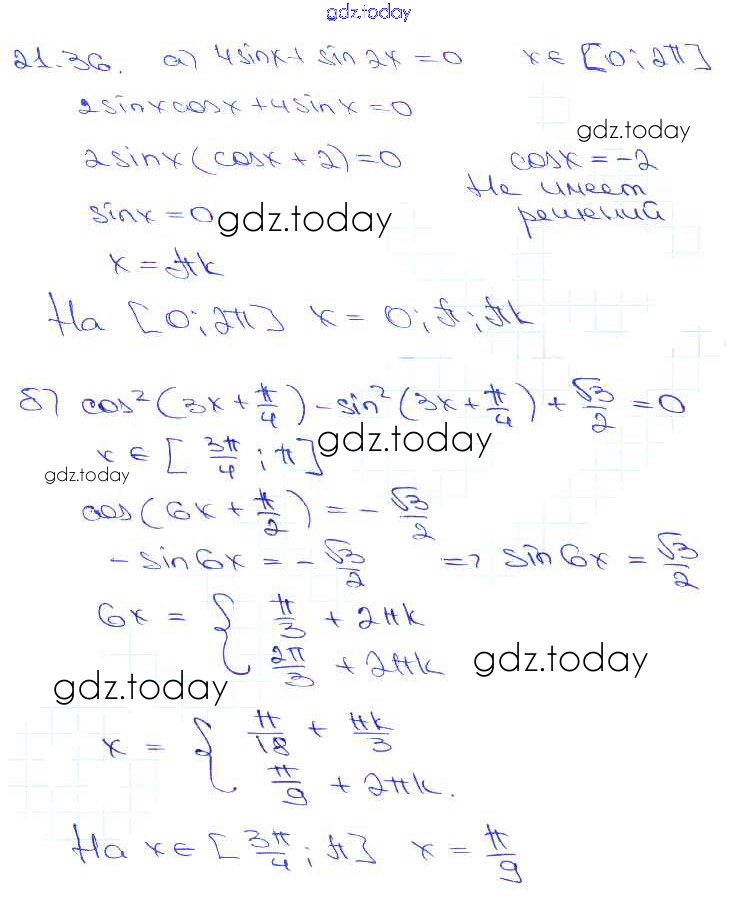 gdz.today
21.36. а) 4sinx + sin 2x = 0 x ∈ [0; 2π]
2sinxcosx + 4sinx = 0
gdz.today
2sinx(cosx + 2) = 0 cosx = -2
Не имеет
sinx = 0 решений
gdz.today
x = πk
На [0; 2π] x = 0; π; πk
б) cos²(3x + π/4) - sin²(3x + π/4) + √3/2 = 0
x ∈ [3π/4; π] gdz.today
gdz.today
cos(6x + π/2) = -√3/2
-sin6x = -√3/2 => sin6x = √3/2
6x = { π/3 + 2πk
2π/3 + 2πk gdz.today
gdz.today
x = { π/18 + πk/3
π/9 + 2πk.
На x ∈ [3π/4; π] x = π/9